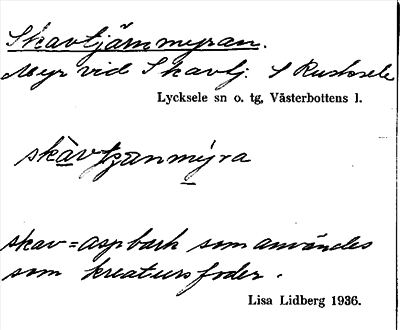 Skavtjärnmyran.
Myr vid Skavtj. S Rusksele
Lycksele sn o. tg, Västerbottens l.
skàvtjz̄anmýra
skav = aspbark som användes
som kreatursfoder.
Lisa Lidberg 1936.